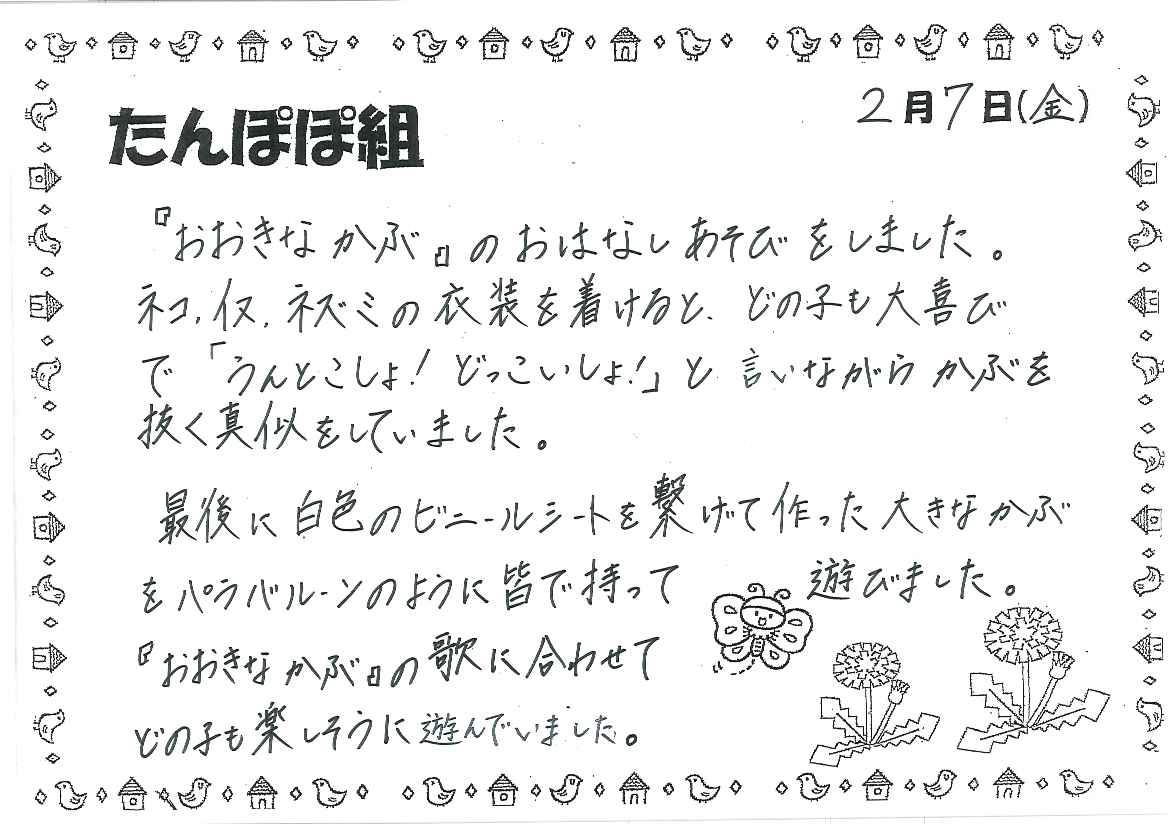 たんぽぽ組
2月7日(金)
『おおきなかぶ』のおはなしあそびをしました。
ネコ、イヌ、ネズミの衣装を着けると、どの子も大喜び
で「うんとこしょ!どっこいしょ!」と言いながらかぶを
抜く真似をしていました。
最後に白色のビニールシートを繋げて作った大きなかぶ
をパラバルーンのように皆で持って遊びました。
『おおきなかぶ』の歌に合わせて
どの子も楽しそうに遊んでいました。